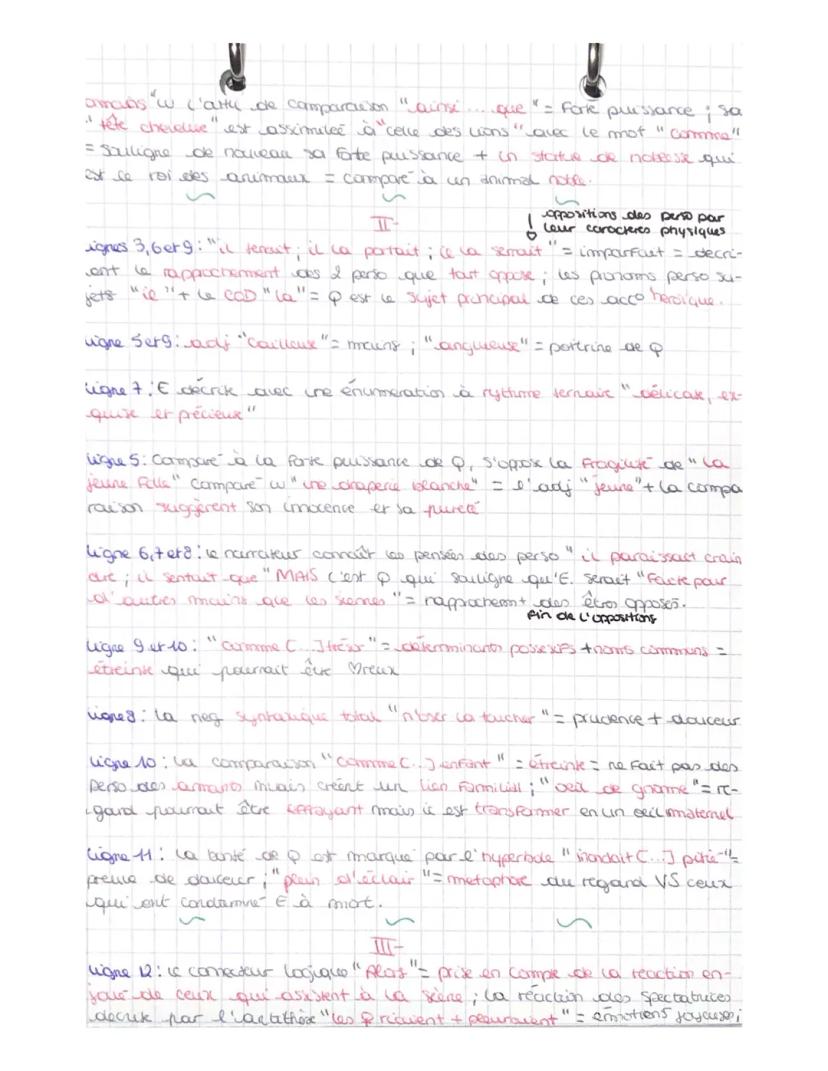 amours" w l'attq de comparaison "ainsi ... que" = Forte puissance ; sa
"tête chevelue" est assimileé à "celle des lions" avec le mot "comme"
= Souligne de nouveau sa forte puissance + un statue de noblesse qui
est le roi des animaux = comparé à un animal noble.
II-
oppositions des perso par
leur caractères physiques
lignes 3,6 et 9 : "il tenait ; il la portait ; il la serrait" = imparfait = décri-
ent le rapprochement des 2 perso que tout oppose ; les pronoms perso su-
jets "il" + le COD "la" = Q est le sujet principal de ces acc° heroïque.
ligne 5 et 9 : adj "calleuse" = mains ; "anguleuse" = poitrine de Q
ligne 7 : E décrite avec une énumération à rythme ternaire "délicate, ex-
quise et précieux"
ligne 5 : Comparé à la forte puissance de Q, s'oppose la Fragilité de "la
jeune fille" comparé w "une draperie blanche" = l'adj "jeune" + la compa
raison suggèrent son innocence et sa pureté
ligne 6,7 et 8 : le narrateur connaît les pensées des perso "il paraissait crain
dre ; il sentait que" MAIS c'est Q qui souligne qu'E. serait "Faite pour
d'autres mains que les siennes" = rapprochemt des êtres opposés.
fin de l'oppositions
ligne 9 et 10 : "comme [...] trésor" = déterminants possessifs + noms communs =
étreinte qui pourrait être ♡reux
ligne 8 : la neg syntaxique total "n'oser la toucher" = prudence + douceur
ligne 10 : la comparaison "comme [...] enfant" = étreinte = ne fait pas des
perso des amants mais créent un lien familial ; "oeil de gnome" = re-
gard pourrait être effrayant mais il est transformer en un oeil maternel
ligne 11 : la bonté de Q est marqué par l'hyperbole "inondait [...] pitié" =
preuve de douceur ; "plein d'éclair" = métaphore du regard VS ceux
qui ont condamné E à mort.
III-
ligne 12 : le connecteur logique "Alors" = prise en compte de la réaction en-
joué de ceux qui assistent à la scène ; la réaction des spectatrices
décrite par l'antithèse "les ♀ riaient + pleuraient" = émotions joyeuses ;